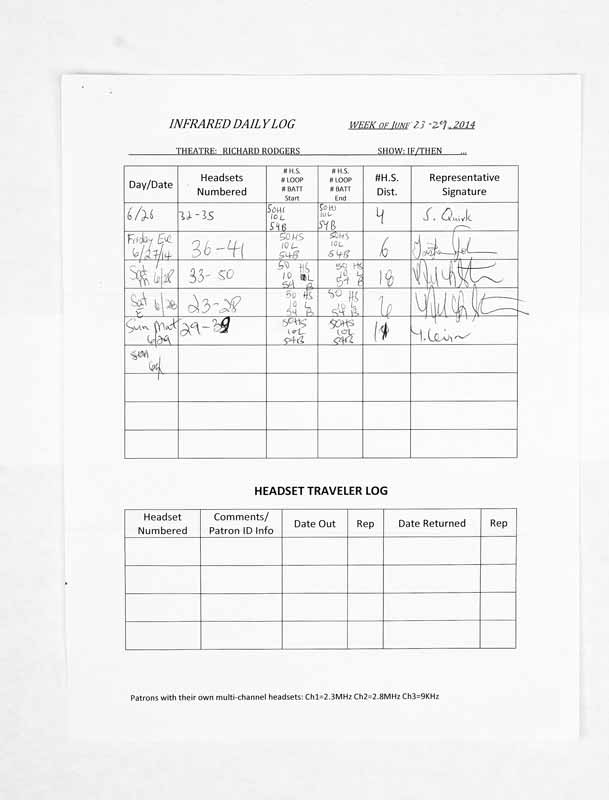 INFRARED DAILY LOG WEEK OF JUNE 23-29, 2014
THEATRE: RICHARD RODGERS SHOW: IF/THEN
Day/Date Headsets Numbered # H.S. # LOOP # BATT Start # H.S. # LOOP # BATT End #H.S. Dist. Representative Signature
6/26 32-35 50HS 10L 54B 50HS 10L 54B 4 S. Quirk
Friday Eve 6/27/14 36-41 50HS 10L 54B 50HS 10L 54B 6
Sat M 6/28 33-50 50 HS 10 L 54 B 50 HS 10 L 54 B 18
Sat E 6/28 23-28 50 HS 10 L 54 B 50 HS 10 L 54 B 6
Sun Mat 6/29 29-39 50HS 10L 54B 50HS 10L 54B 11
Sun
HEADSET TRAVELER LOG
Headset Numbered Comments/ Patron ID Info Date Out Rep Date Returned Rep
Patrons with their own multi-channel headsets: Ch1=2.3MHz Ch2=2.8MHz Ch3=9KHz